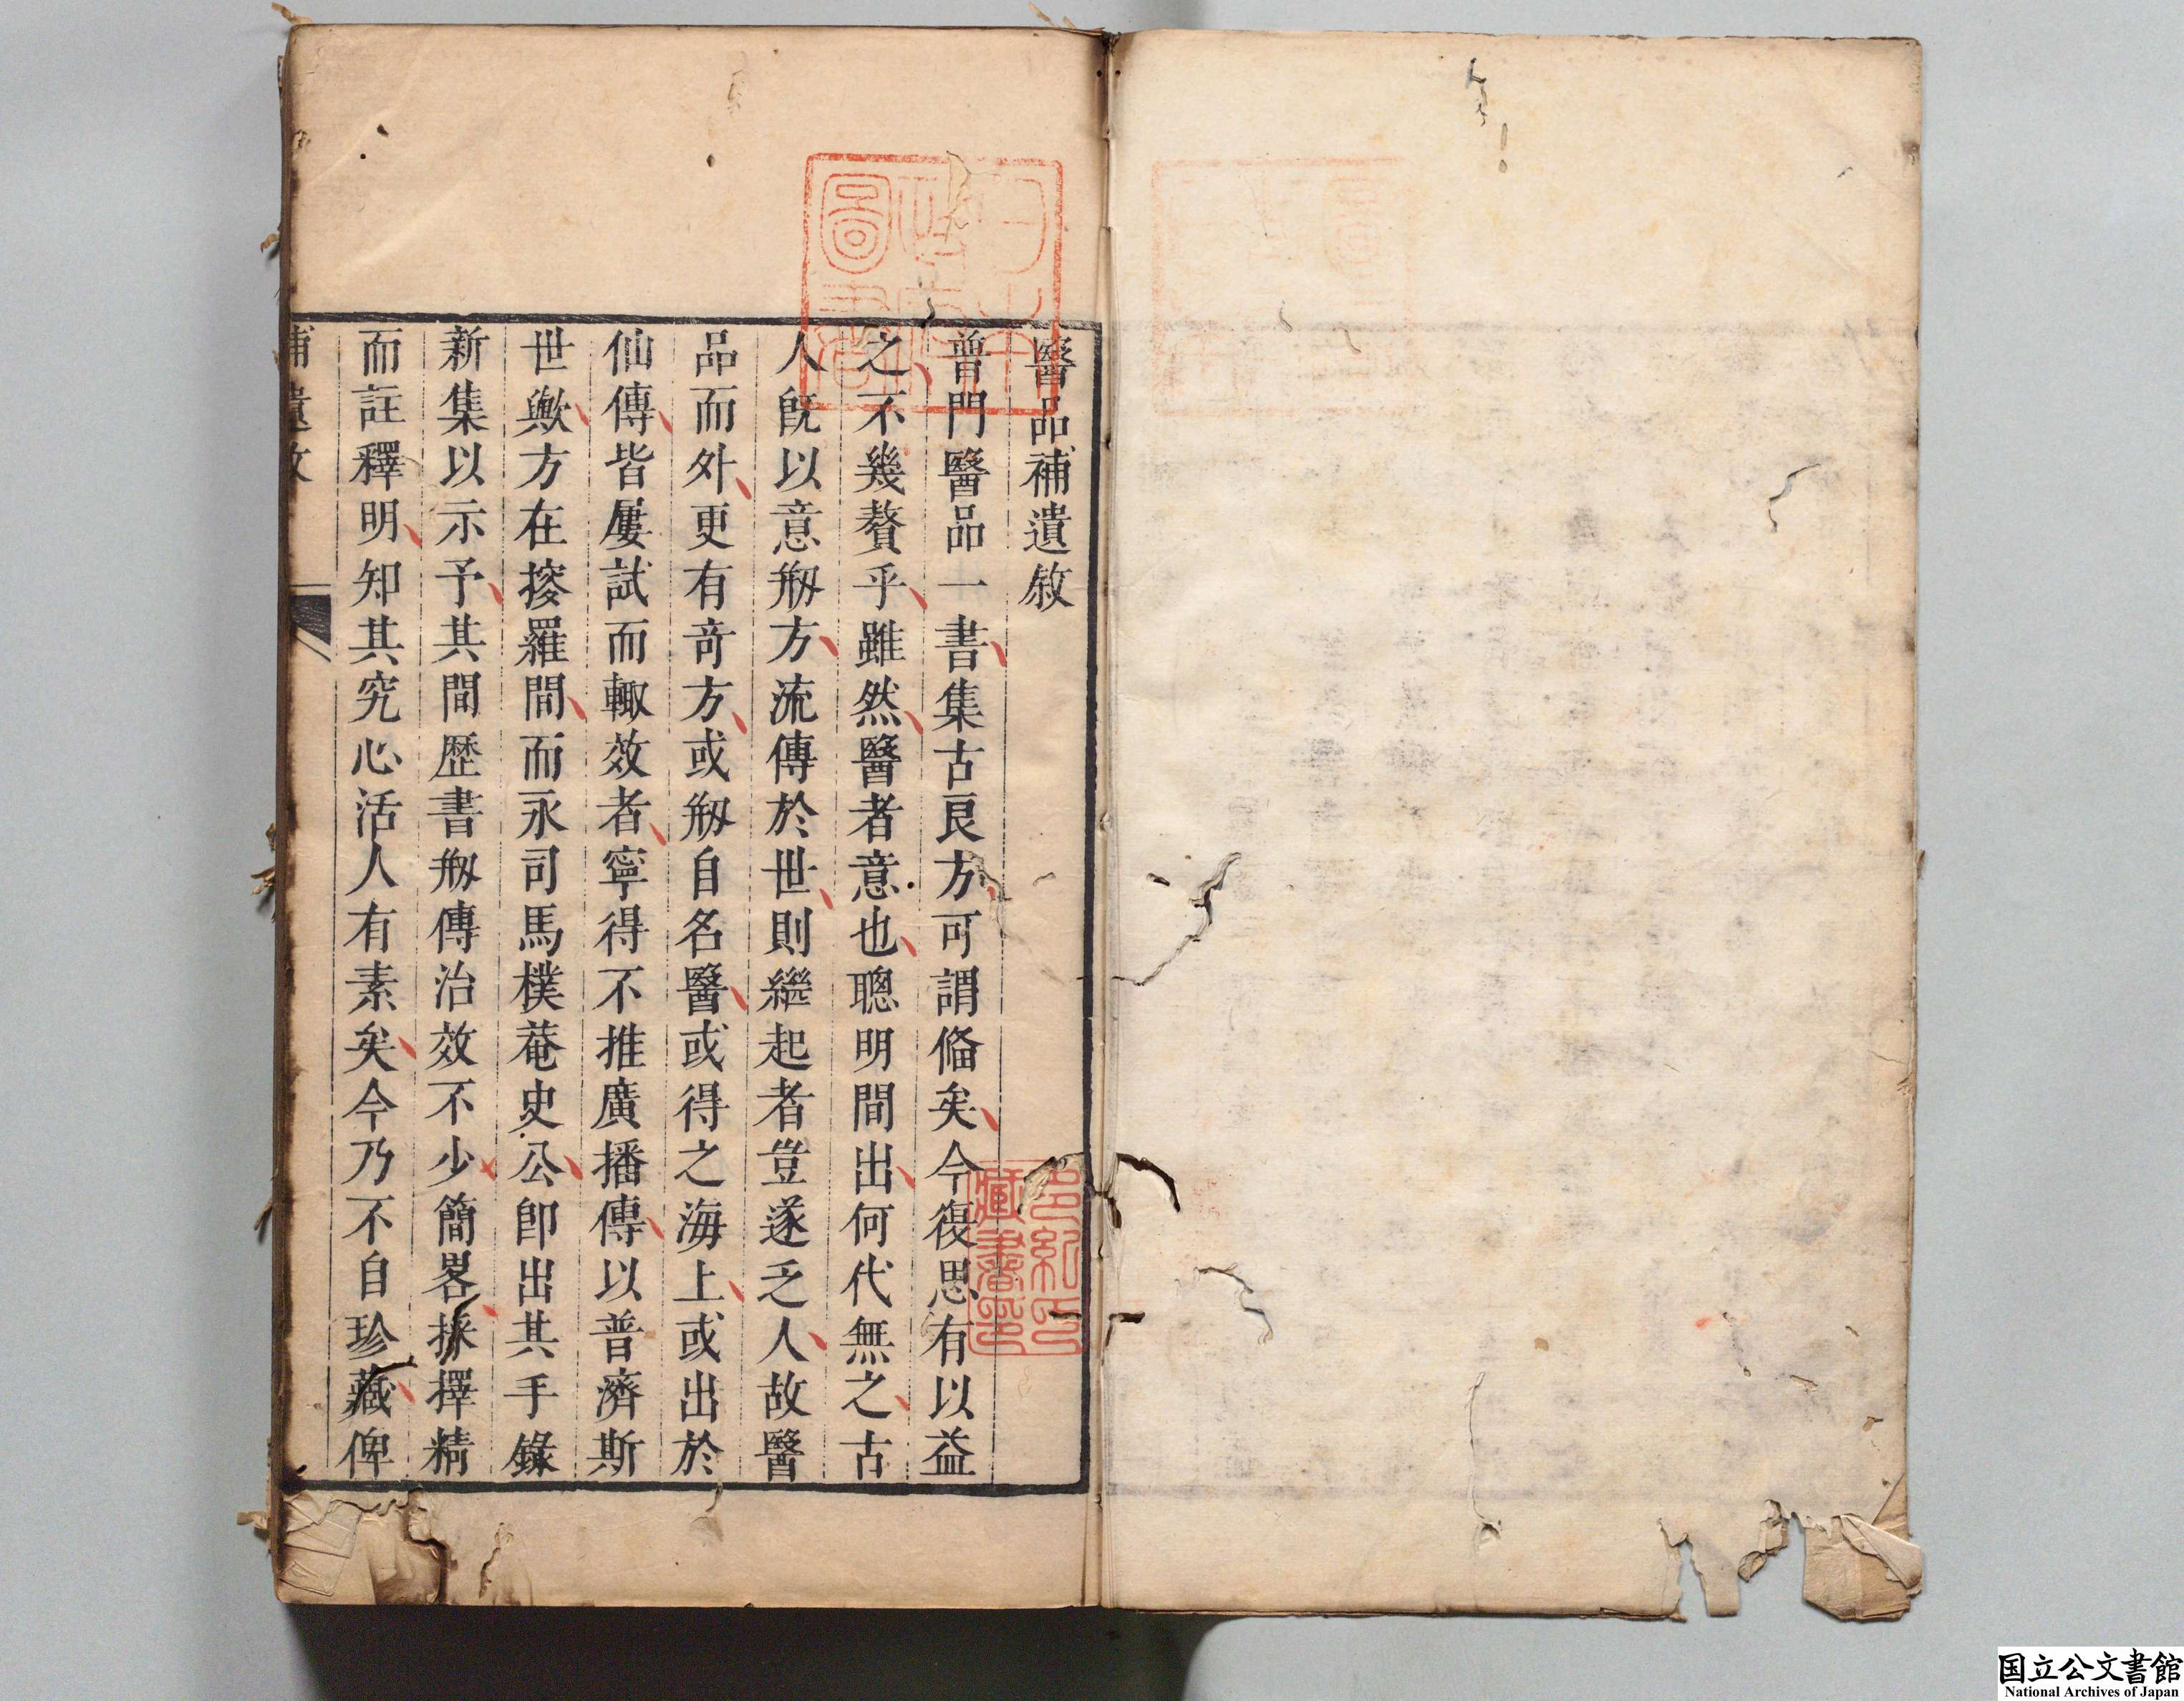 醫品補遺敘
普門醫品一書集古良方可謂僃矣今復思有以益
之不幾贅乎雖然醫者意也聰明間出何代無之古
人旣以意剏方流傳於世則繼起者豈遂乏人故醫
品而外更有奇方或剏自名醫或得之海上或出於
仙傳皆屢試而輙效者寧得不推廣播傳以普濟斯
世歟方在搜羅間而永司馬樸菴史公卽出其手錄
新集以示予其間歷書剏傳治效不少簡畧採擇精
而註釋明知其究心活人有素矣今乃不自珍藏俾
補遺敘
多紀氏藏書印
国立公文書館
National Archives of Japan